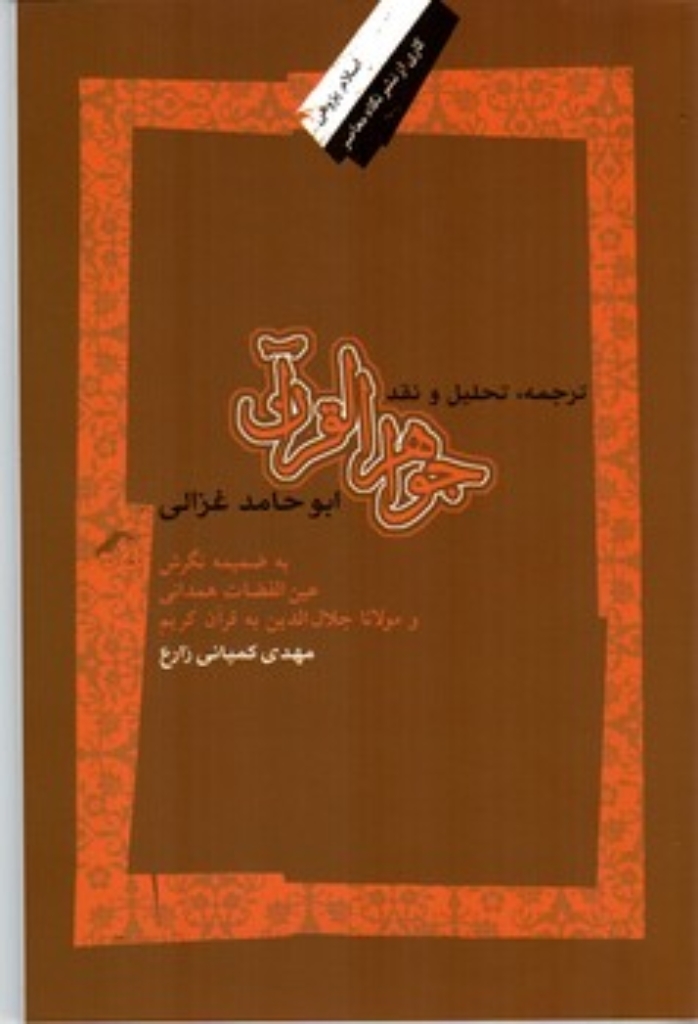 اسلام پژوهی
کاری از نشر نگاه معاصر
ترجمه، تحلیل و نقد
جواهر القرآن
ابو حامد غزالی
به ضمیمه نگرش
عین القضات همدانی
و مولانا جلال‌الدین به قرآن کریم
مهدی کمپانی زارع